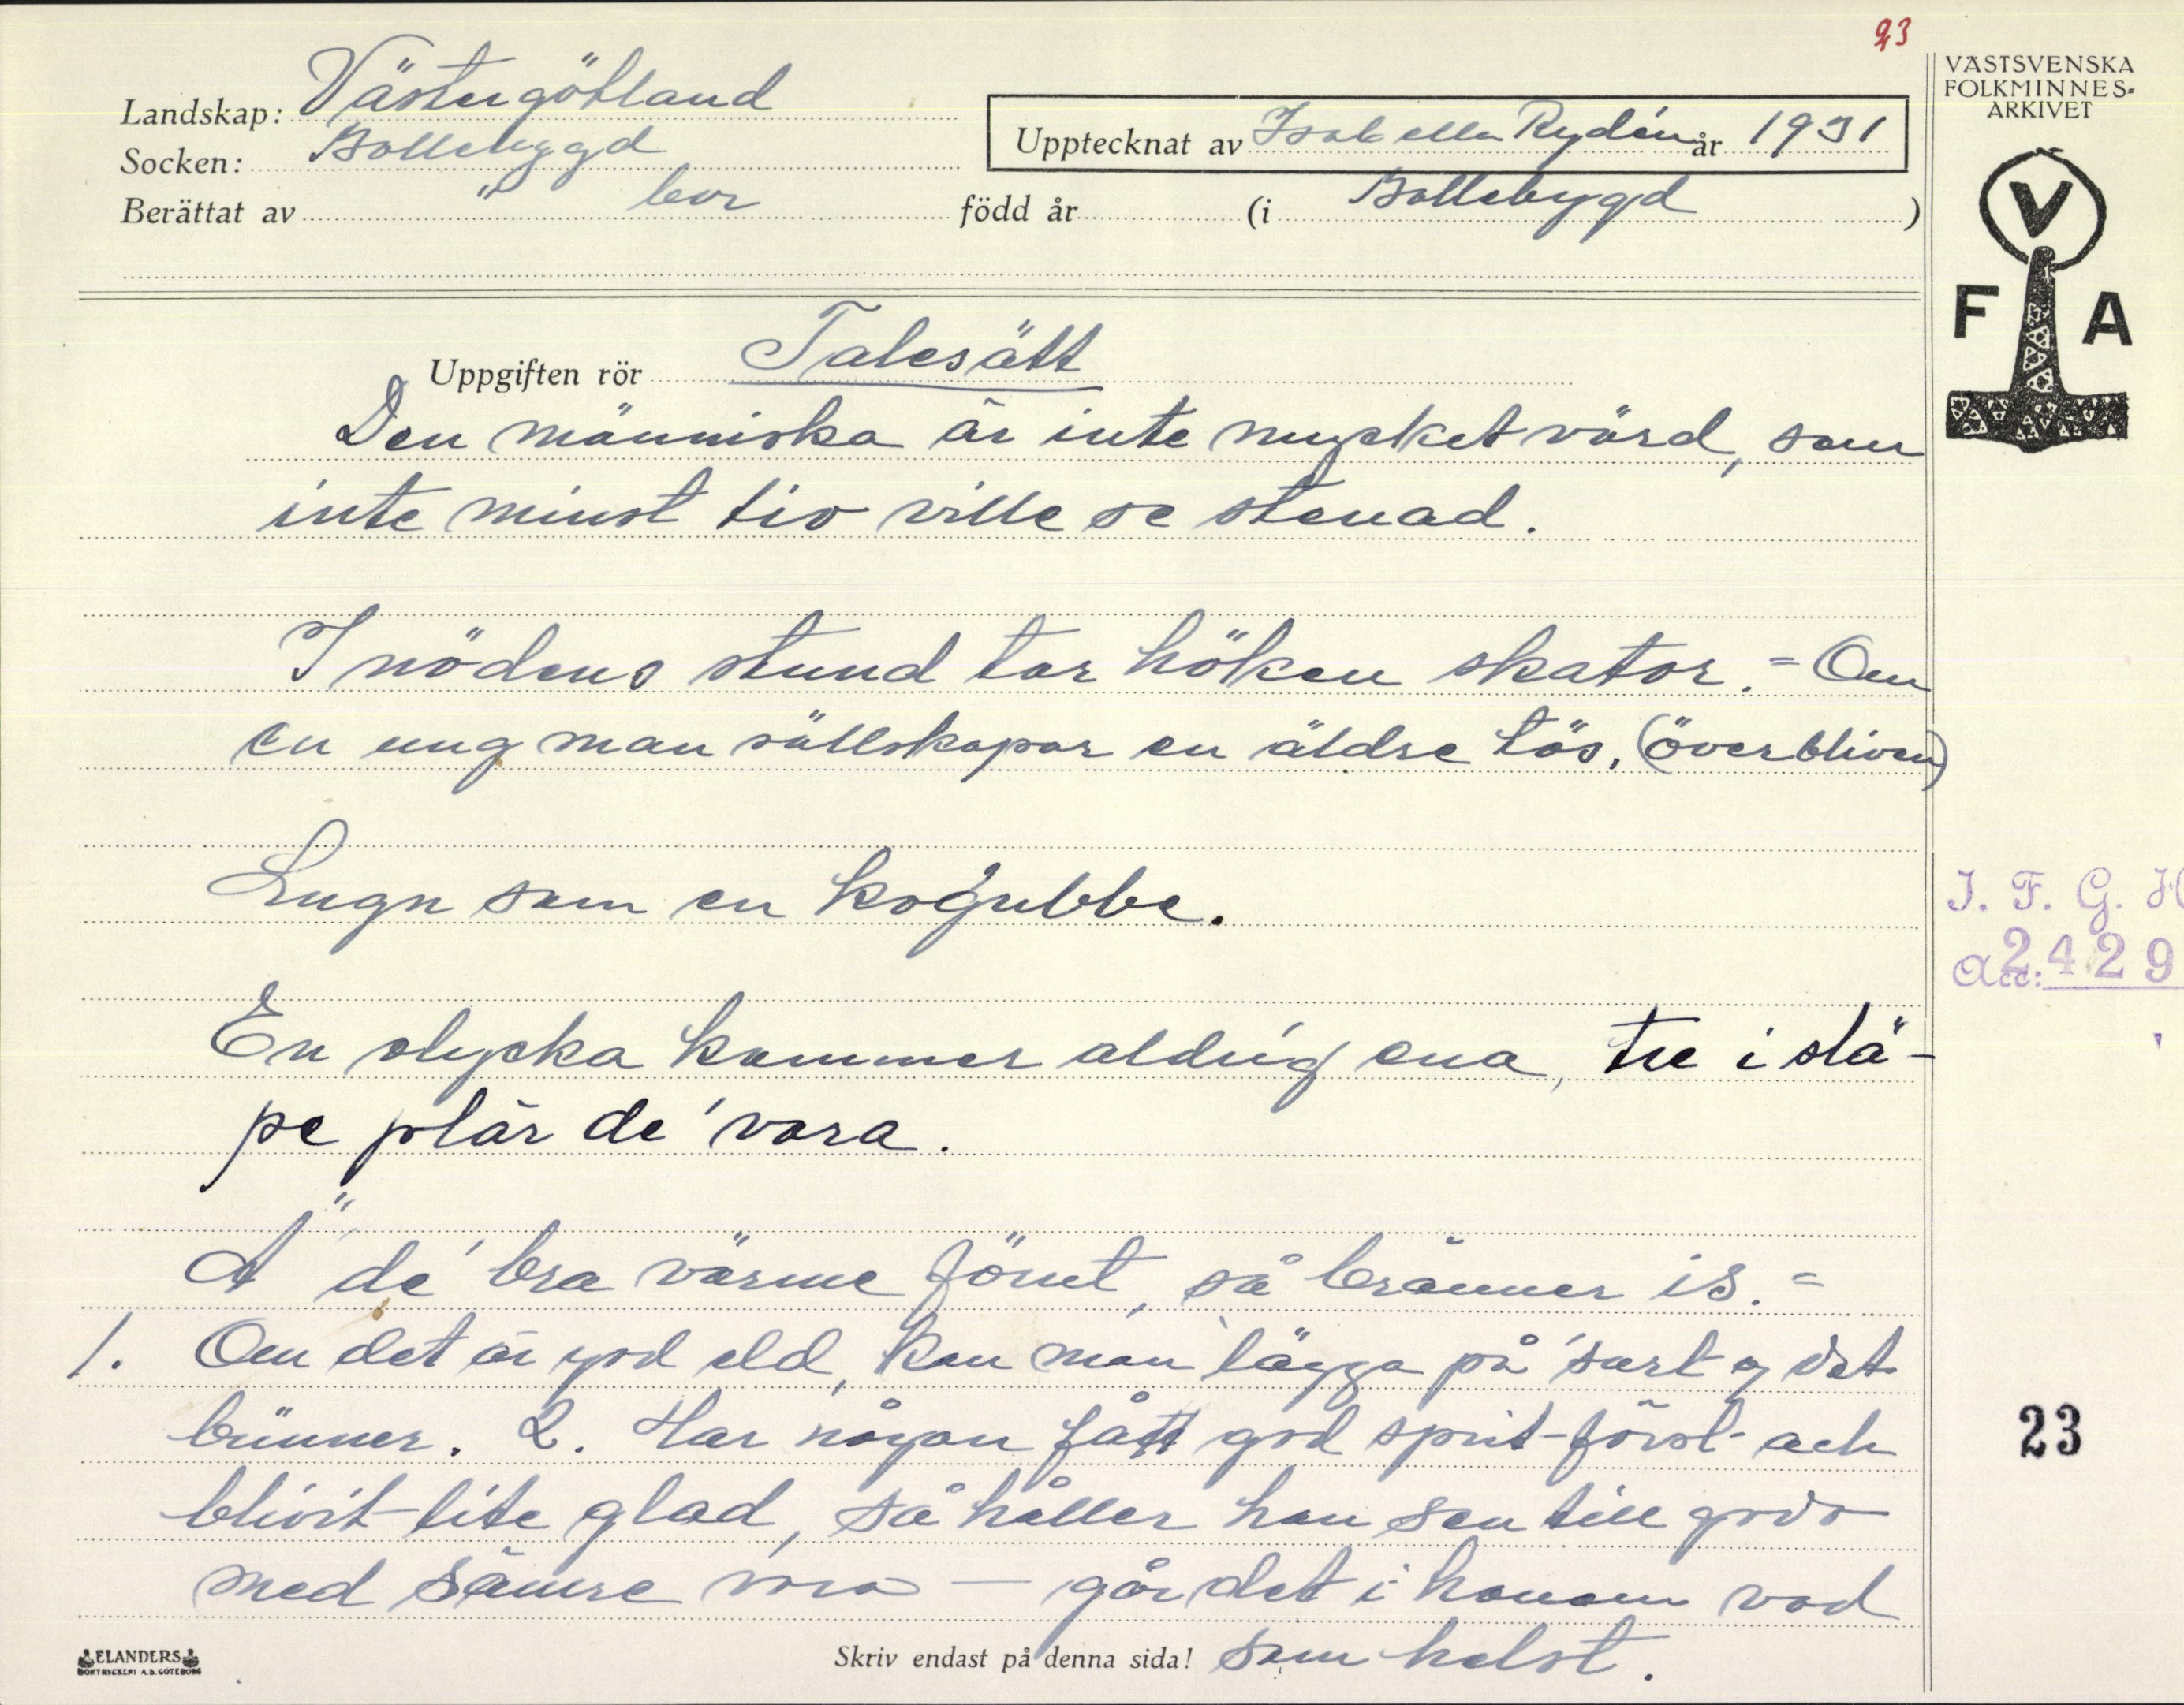 23
VÄSTSVENSKA
FOLKMINNES-
ARKIVET
Landskap: Västergötland
Socken: Bollebygd
Upptecknat av Isabella Rydén år 1931
Berättat av " bor född år (i Bollebygd)
V
F A
Uppgiften rör Talesätt
Den människa är inte mycket värd, som
inte minst tio ville se stenad.
I nödens stund tar höken skator. = Om
en ung man sällskapar en äldre tös. (överbliven)
Lugn som en kogubbe.
I. F. G. H
Acc: 2429
En olycka kommer aldrig ena, tre i slä-
pe plär de' vara.
Ä de' bra värme fömt, så bränner is. =
1. Om det är god eld, kan man lägga på surt o det
brinner. 2. Har någon fått god sprit först och
23
blivit lite glad, så håller han sen till godo
med sämre vara — går det i honom vad
som helst.
ELANDERS
BOKTRYCKERI A.B. GÖTEBORG
Skriv endast på denna sida!